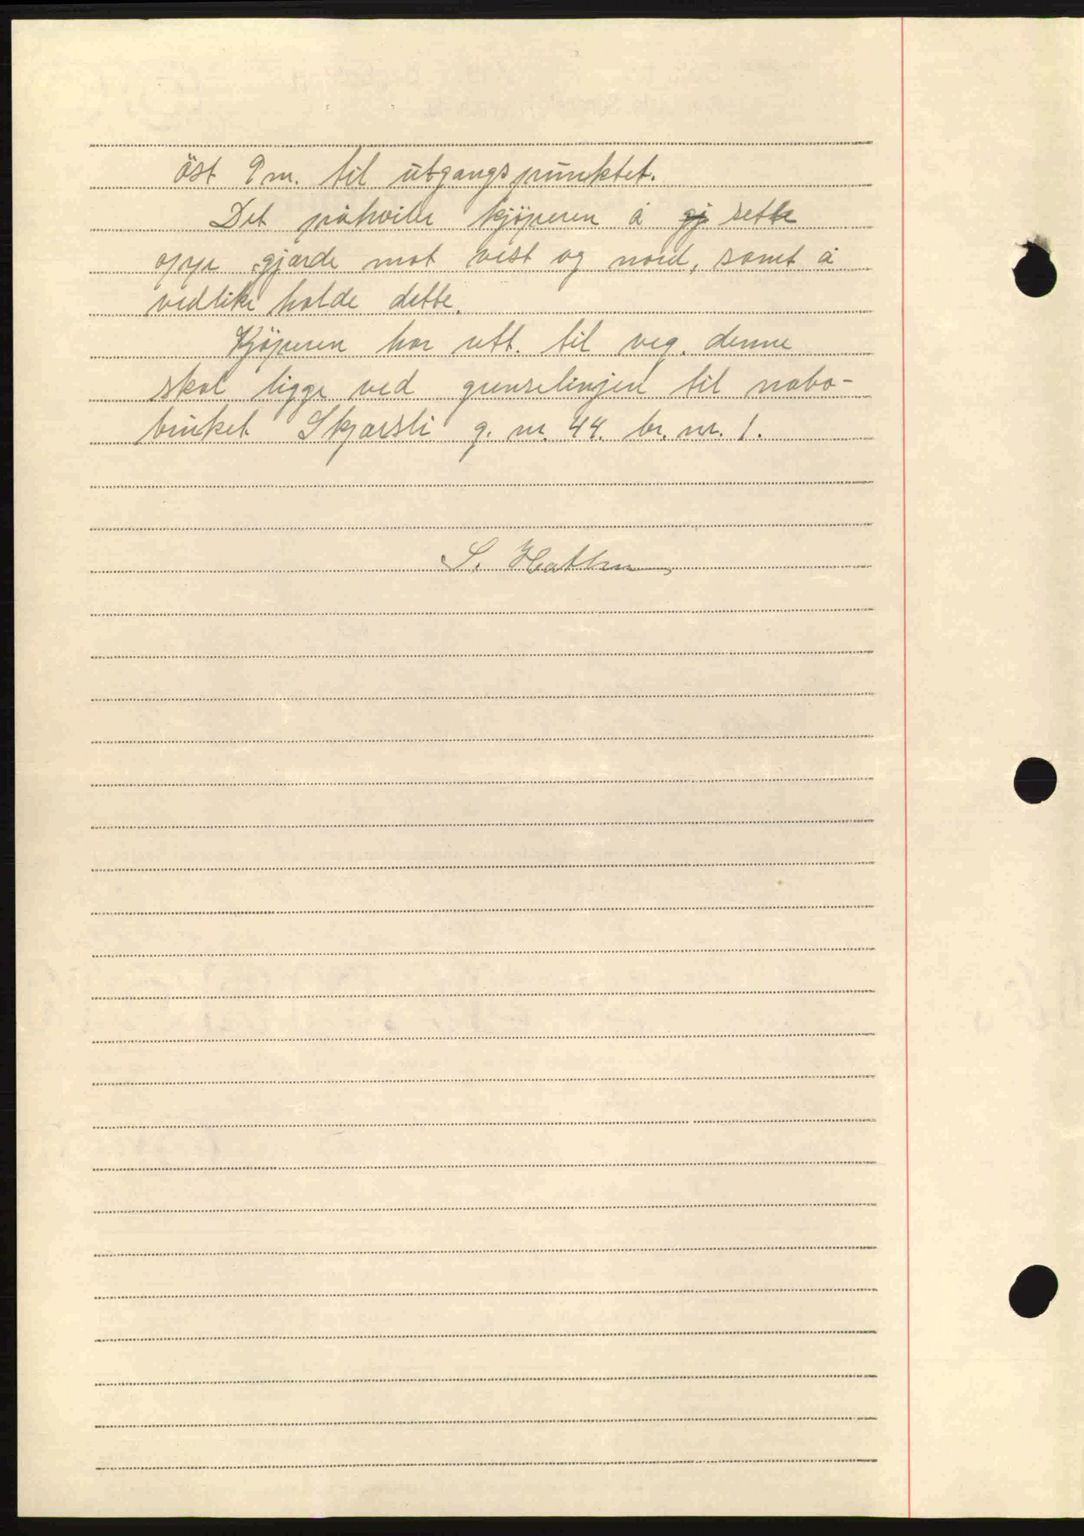 öst 9 m. til utgangspunktet.
Det påhviler kjöperen å gj sette
opp gjærde mot vest og nord, samt å
vedlike holde dette.
Kjöperen har rett til veg. denne
skal ligge ved grenselinjen til nabo-
bruket Skjærsli g. nr. 44. br. nr. 1.
S.